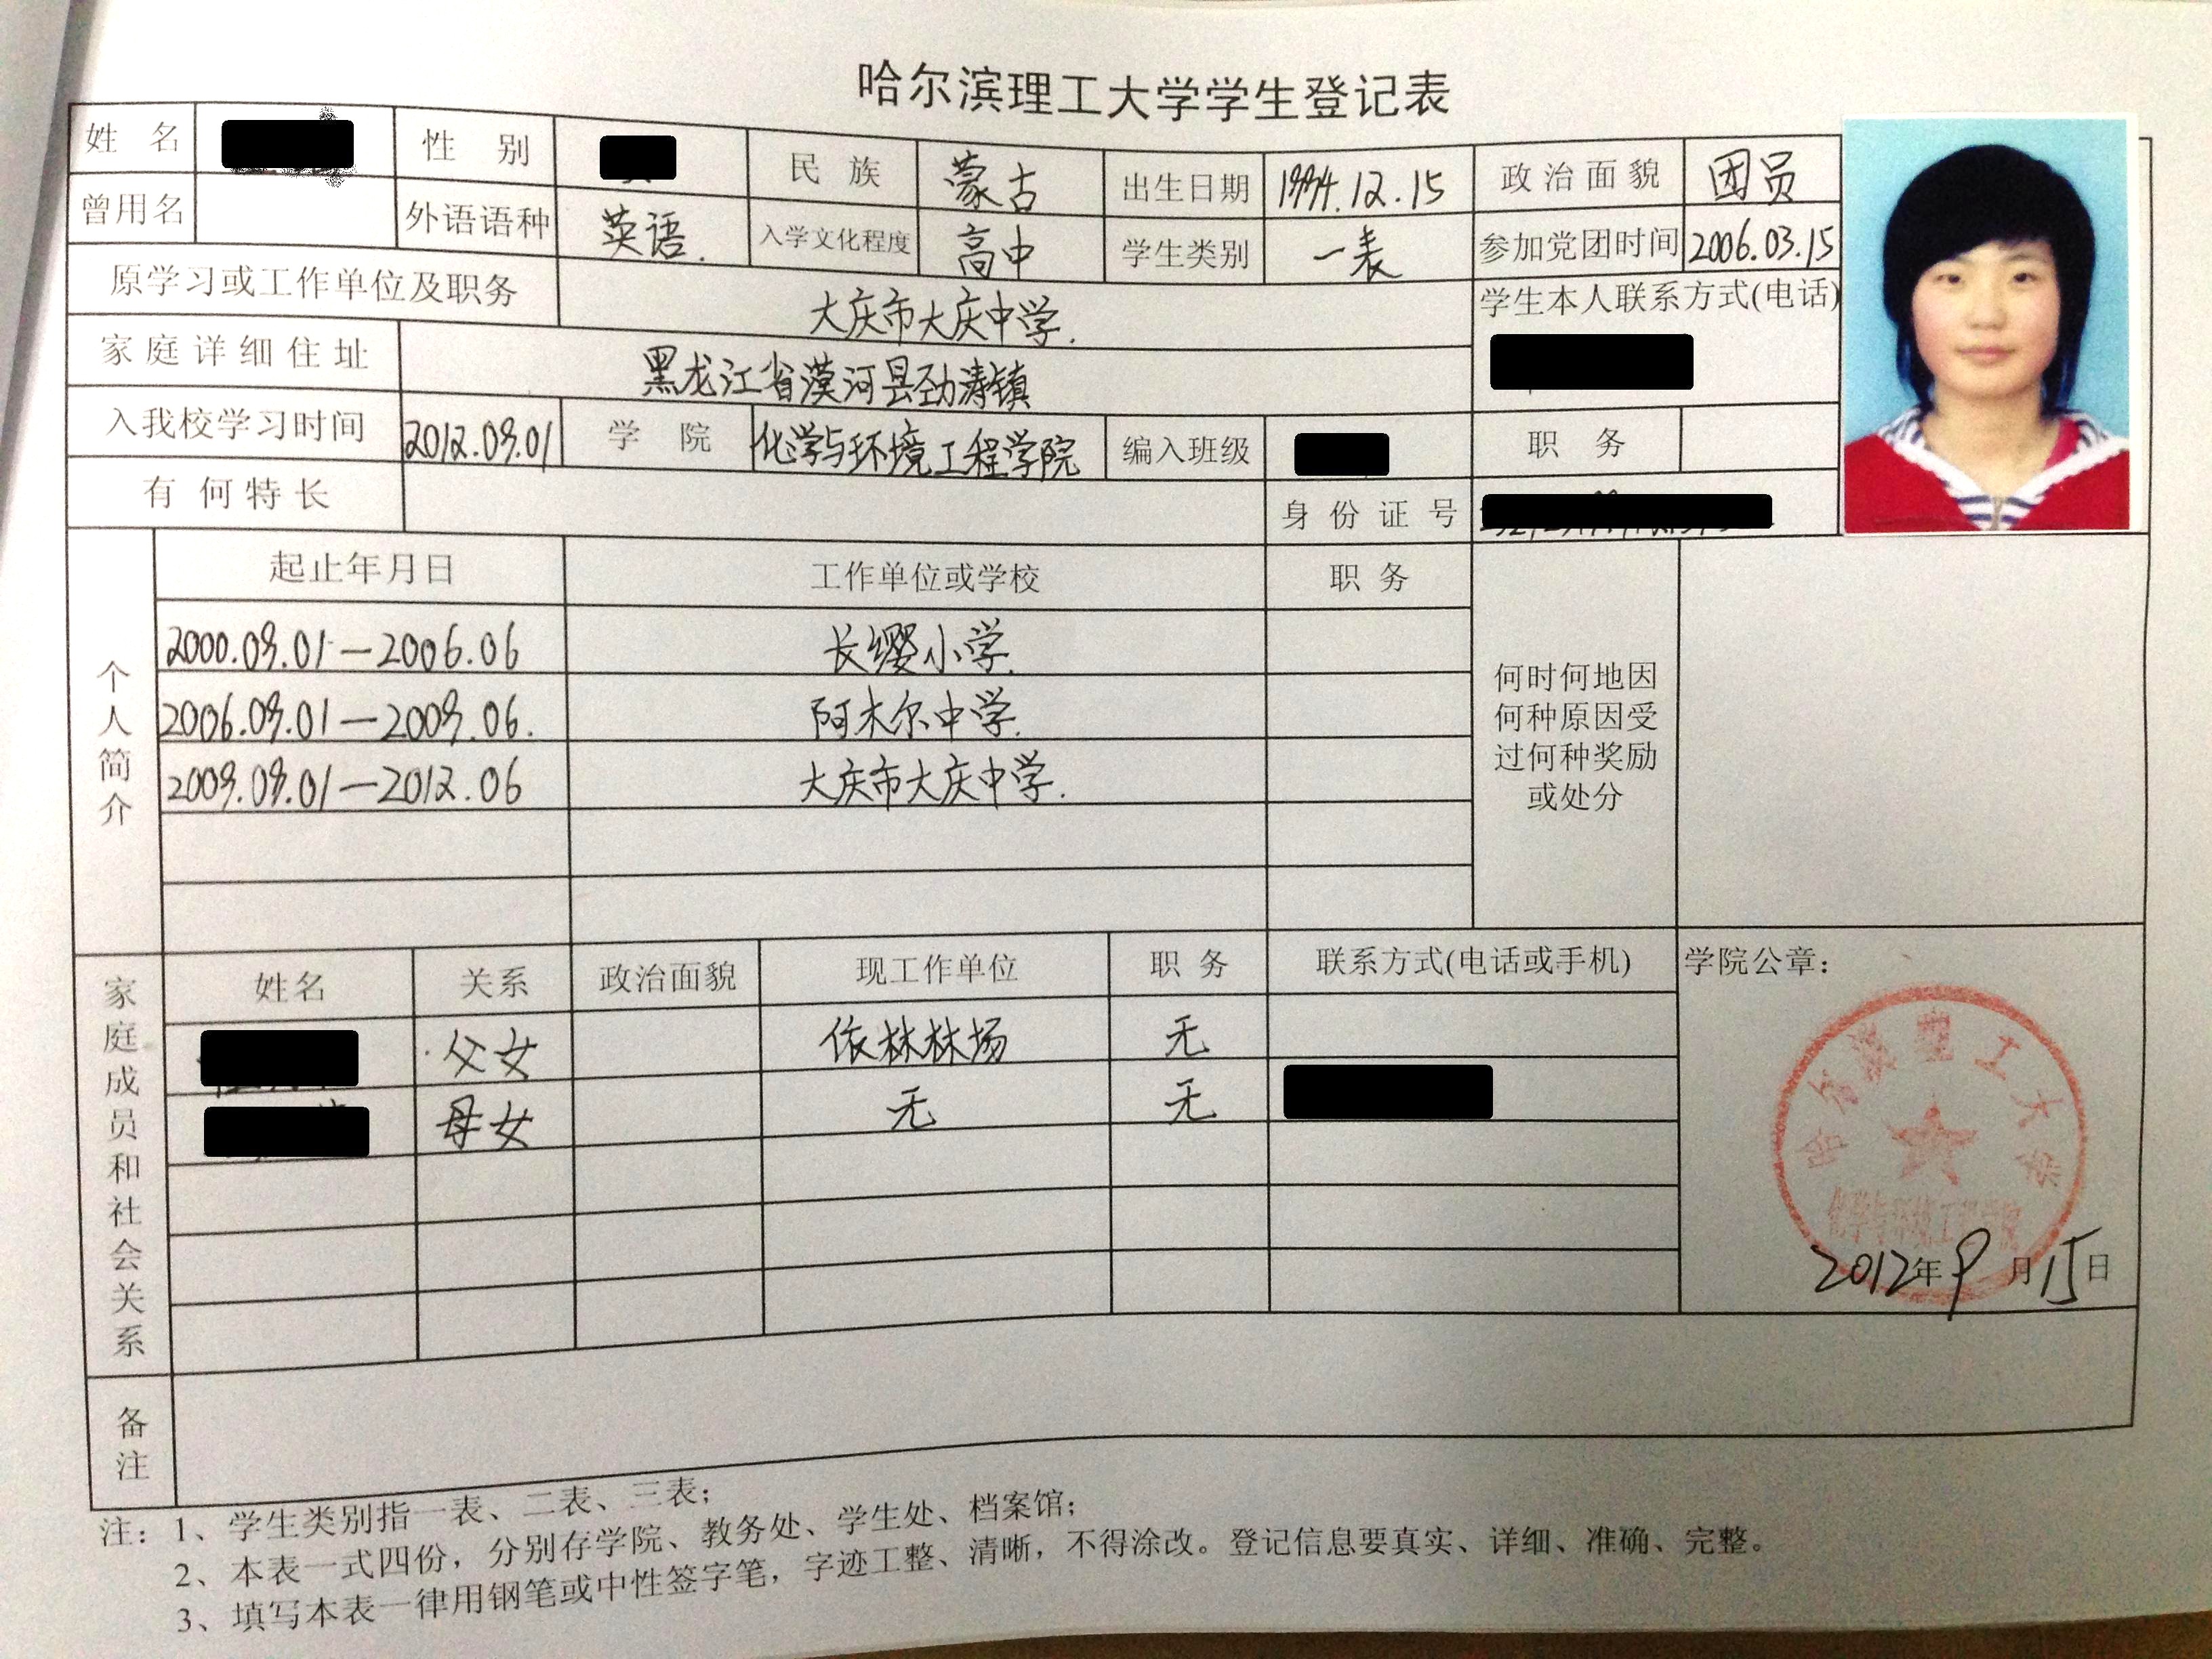 哈尔滨理工大学学生登记表
姓 名 性 别 民 族 蒙古 出生日期 1994.12.15 政治面貌 团员
曾用名 外语语种 英语. 入学文化程度 高中 学生类别 一表 参加党团时间 2006.03.15
原学习或工作单位及职务 大庆市大庆中学. 学生本人联系方式(电话)
家庭详细住址 黑龙江省漠河县劲涛镇
入我校学习时间 2012.09.01 学 院 化学与环境工程学院 编入班级 职 务
有何特长 身份证号
个人简介
起止年月日 工作单位或学校 职 务
2000.09.01—2006.06 长缨小学.
2006.09.01—2009.06. 阿木尔中学.
2009.09.01—2012.06 大庆市大庆中学.
何时何地因
何种原因受
过何种奖励
或处分
家庭成员和社会关系
姓名 关系 政治面貌 现工作单位 职 务 联系方式(电话或手机) 学院公章：
父女 依林林场 无
母女 无 无
哈尔滨理工大学
化学与环境工程学院
2012年9月15日
备注
注：1、学生类别指一表、二表、三表；
2、本表一式四份，分别存学院、教务处、学生处、档案馆；
3、填写本表一律用钢笔或中性签字笔，字迹工整、清晰，不得涂改。登记信息要真实、详细、准确、完整。